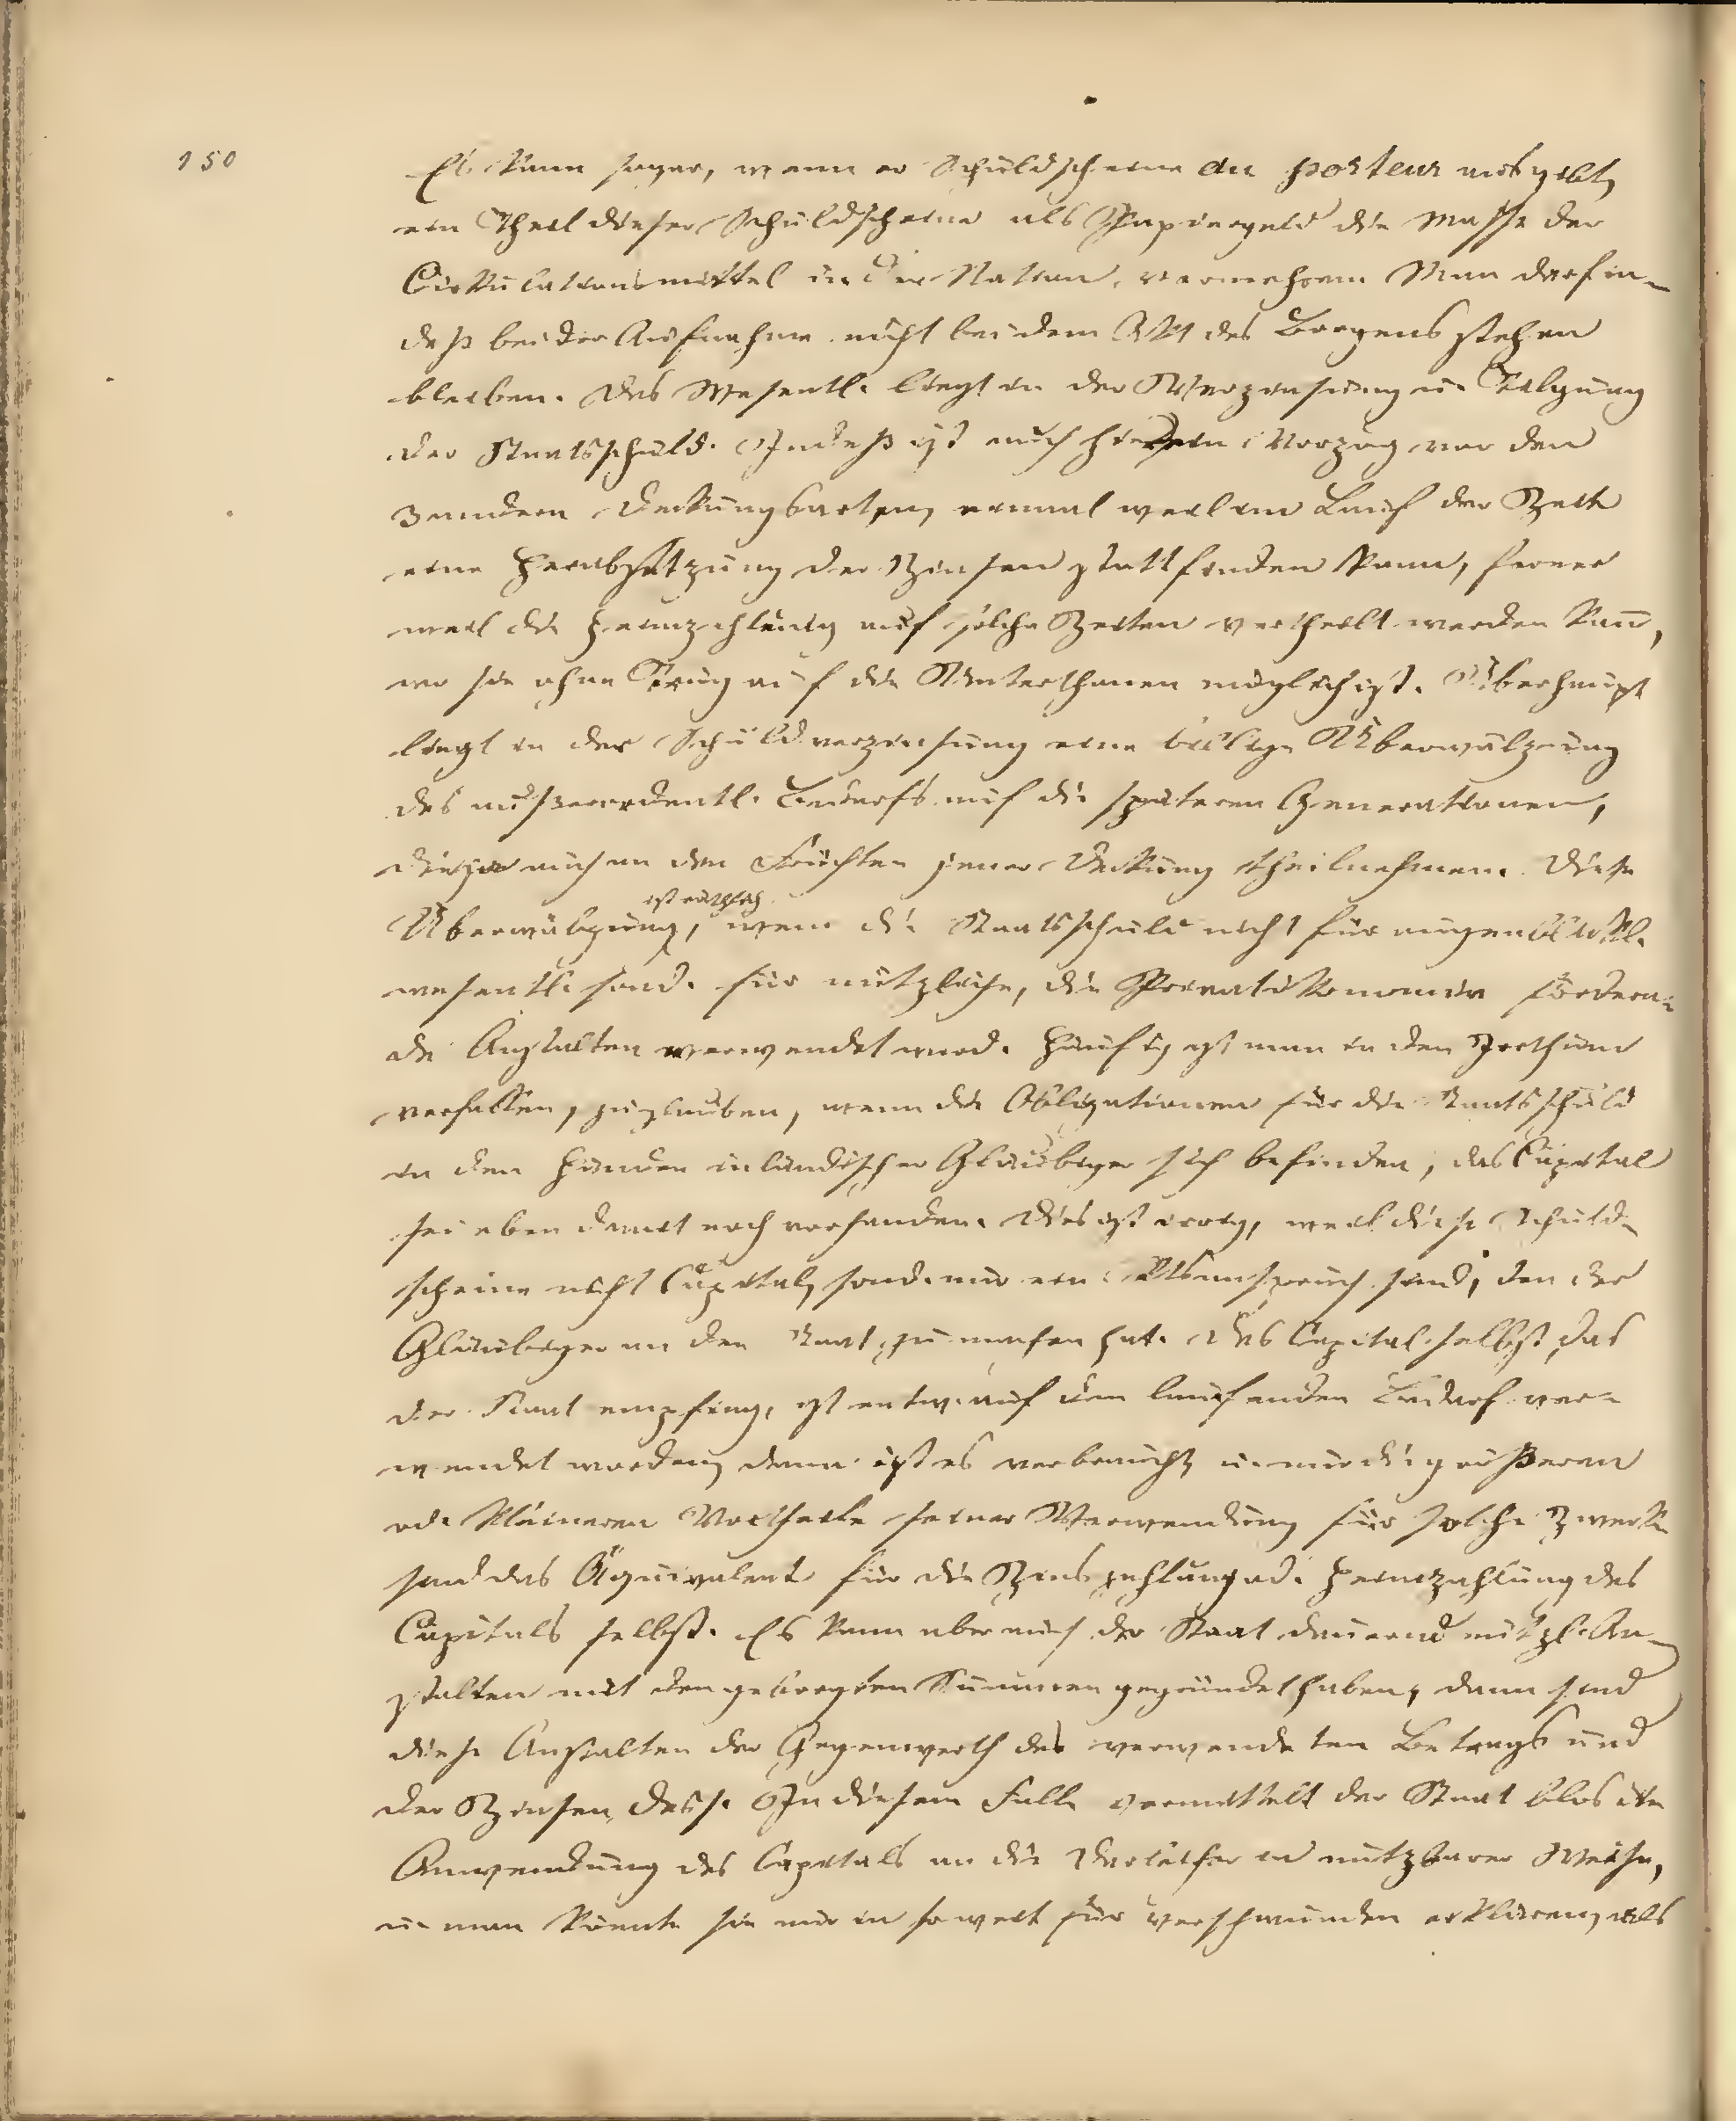 150
Es kann sogar, wenn er Schuldscheine au porteur ausgibt,
ein Theil dieser Schuldscheine als Papiergeld die Masse der
Cirkulationsmittel in der Nation vermehren. Man darf in-
deß bei der Aufnahme nicht bei dem Akt des Borgens stehen
bleiben. Das Wesentl. liegt in der Verzinsung u. Tilgung
der Staatsschuld. Indeß ist auch hier ein Vorzug vor den
andern Deckungsarten, einmal weil im Lauf der Zeit
eine Herabsetzung der Zinsen stattfinden kann, ferner
weil die Heimzahlung auf solche Zeiten vertheilt werden kan̄,
wo sie ohne Druck auf die Unterthanen möglich ist. Überhaupt
liegt in der Schuldverzinsung eine billige Überwälzung
des außerordentl. Bedarfs auf die späteren Generationen,
die ja auch an den Früchten jener Deckung theilnehmen. Diese
ist nützlich
Überwälzung, wenn die Staatsschuld nicht für augenblickl.
wesentl. sond. für nützliche, die Privatökonomien fördern-
de Anstalten verwendet wird. Häufig ist man in den Irrthum
verfallen, zu glauben, wenn die Obligationen für die Staatsschuld
in den Händen inländischer Gläubiger sich befinden, das Capital
sei eben damit noch vorhanden. Dies ist irrig, weil diese Schuld-
scheine nicht Capital, sond. nur ein Anspruch sind, den der
Gläubiger an den Staat zu machen hat. Das Capital selbst, das
der Staat empfing, ist entw. auf den laufenden Bedarf ver-
wendet worden, dann ist es verbraucht, u. nur die größeren
od. kleineren Vortheile seiner Verwendung für solche Zwecke
sind das Äquivalent für die Zinszahlung od. Heimzahlung des
Capitals selbst. Es kann aber auch der Staat dauernd nützl. An-
stalten mit den geborgten Summen gegründet haben, dann sind
diese Anstalten der Gegenwerth des verwendeten Betrags und
der Zinsen dess. In diesem Falle vermittelt der Staat blos die
Anwendung des Capitals an die Darleiher in nutzbarer Weise,
u. man könnte sie nur in so weit für verschwunden erklären, als